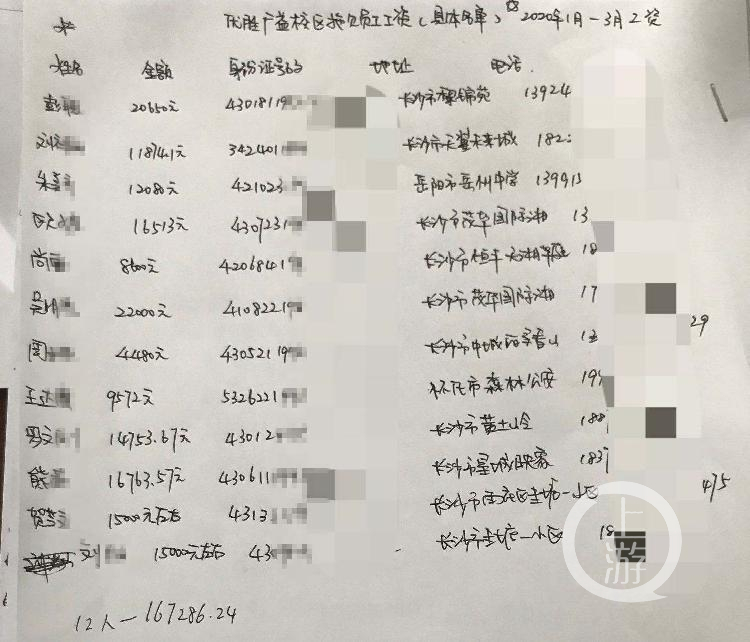 优胜广益校区拖欠员工工资(具体名单) 2020年1月-3月工资
姓名 金额 身份证号码 地址 电话
彭 20650元 43018119 长沙市 锦苑 13924
刘 11874.1元 342401 长沙市 未来城 182
朱 12080元 421023 岳阳市岳州中学 139913
欧 16513元 430723 长沙市茂华国际湘 13
尚 8600元 42068419 长沙市恒丰 18
吴 22000元 41082219 长沙市茂华国际湘 17
周 4480元 43052119 长沙市中城丽景香山 13 29
王 9572元 5326221 怀化市森林公安 199
罗文 14753.67元 43012 长沙市黄土岭 188
熊 16763.57元 430611 长沙市星城映象 1837
贺 15000元左右 4313 长沙市雨花区圭塘一小区 475
刘 15000元左右 43 长沙市圭塘一小区 18
12人—167286.24
上游